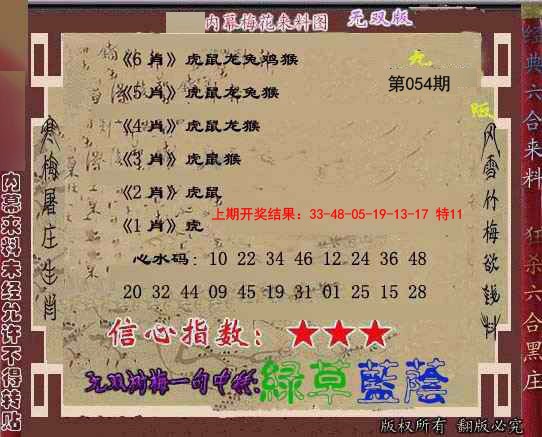 内幕梅花来料图 无双版
《6 肖》虎鼠龙兔鸡猴
第054期
《5 肖》虎鼠龙兔猴
《4 肖》虎鼠龙猴
《3 肖》虎鼠猴
《2 肖》虎鼠
上期开奖结果：33-48-05-19-13-17 特11
《1 肖》虎
心水码：10 22 34 46 12 24 36 48
20 32 44 09 45 19 31 01 25 15 28
信心指数：★★★
绿草蓝荫
版权所有 翻版必究
寒梅屠庄生肖
风雪竹梅欲钱料
内幕来料未经允许不得转贴
经典六合来料
狂杀六合黑庄